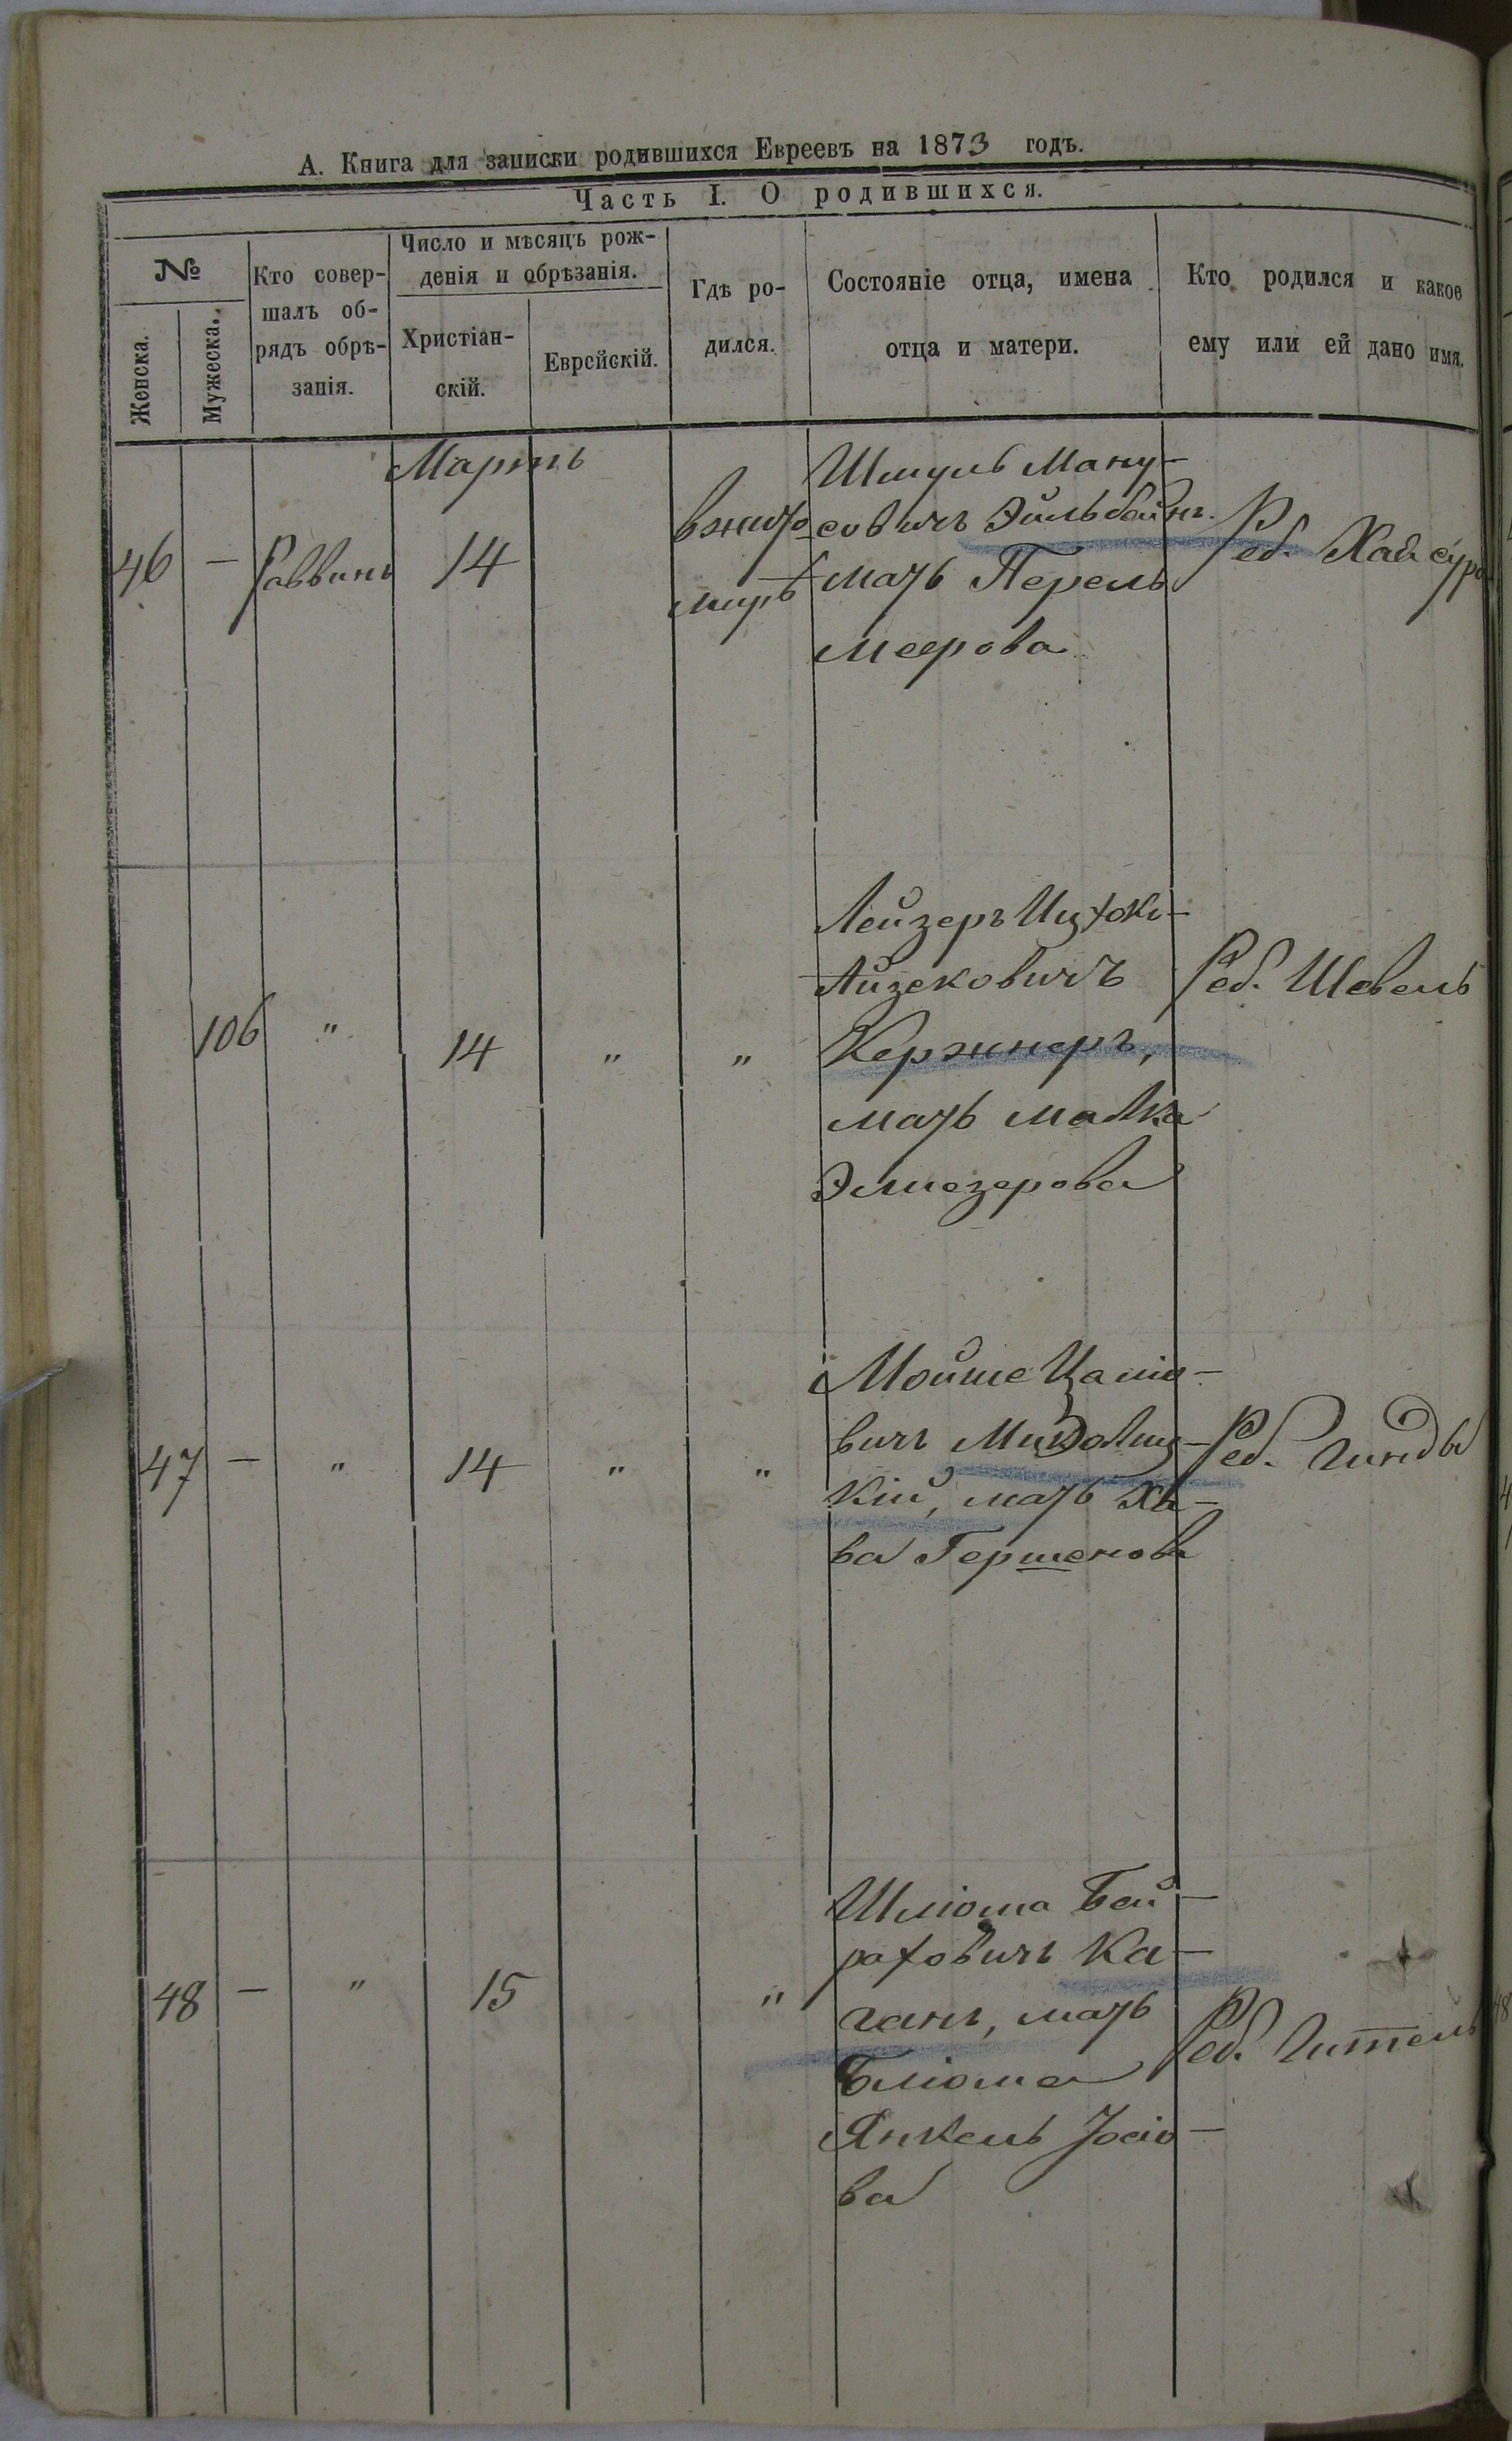 А. Книга для записки родившихся Евреевъ на 1873 годъ.
Часть I. О родившихся.
№
Женска.
Мужеска.
Кто совер-
шалъ об-
рядъ обрѣ-
занія.
Число и мѣсяцъ рож-
денія и обрѣзанія.
Христіан-
скій.
Еврейскій.
Гдѣ ро-
дился.
Состояніе отца, имена
отца и матери.
Кто родился и какое
ему или ей дано имя.
Мартъ
46 — Раввинъ 14
в жито
мирѣ
Шмуль Ману-
совичъ Эйльбейнъ.
мать Перель
Меерова
Реб. Хая Сура
106 " 14 " "
Лейзеръ Ицхокъ-
Айзековичъ
Кержнеръ,
мать Малка
Элиезерова
Реб. Шевель
47 — " 14 " "
Мойше
вичъ
кій, мать Ха-
ва Гершенова
Реб. Гинда
48 — " 15 "
Шлiома Бей-
раховичъ Ка-
ганъ, мать
Блiома
Янкель Іосіо-
ва
Реб. Гитель